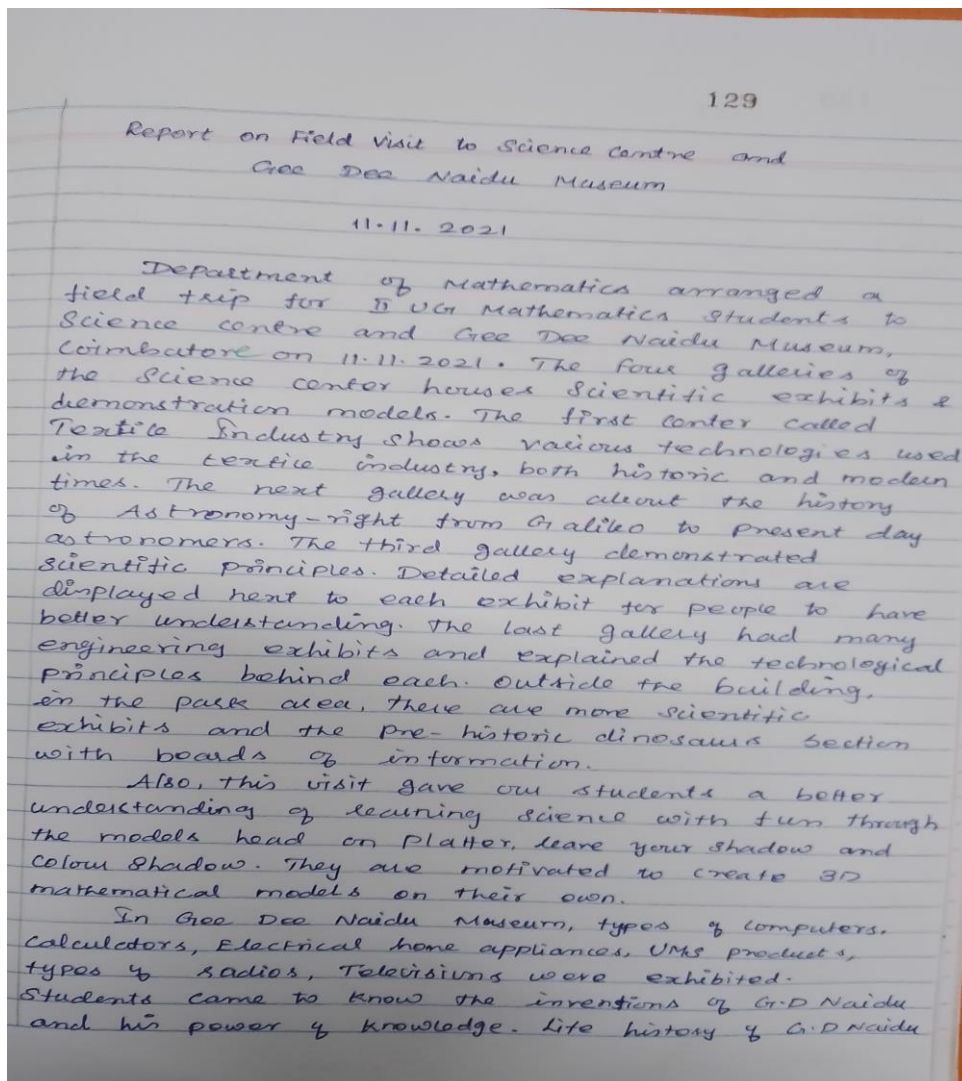 129
Report on Field Visit to Science Centre and
Gee Dee Naidu Museum
11.11.2021
Department of Mathematics arranged a
field trip for II UG Mathematics Students to
Science centre and Gee Dee Naidu Museum,
Coimbatore on 11.11.2021. The four galleries of
the Science center houses Scientific exhibits &
demonstration models. The first center called
Textile Industry shows various technologies used
in the textile industry, both historic and modern
times. The next gallery was about the history
of Astronomy-right from Galileo to present day
astronomers. The third gallery demonstrated
scientific principles. Detailed explanations are
displayed next to each exhibit for people to have
better understanding. The last gallery had many
engineering exhibits and explained the technological
principles behind each. Outside the building,
in the park area, there are more scientific
exhibits and the pre-historic dinosaurs section
with boards of information.
Also, this visit gave our students a better
understanding of learning science with fun through
the models head on Platter, leave your shadow and
colour shadow. They are motivated to create 3D
mathematical models on their own.
In Gee Dee Naidu Museum, types of computers,
calculators, Electrical home appliances, UMS products,
types of radios, Televisions were exhibited.
Students came to know the inventions of G.D Naidu
and his power of knowledge. Life history of G.D Naidu